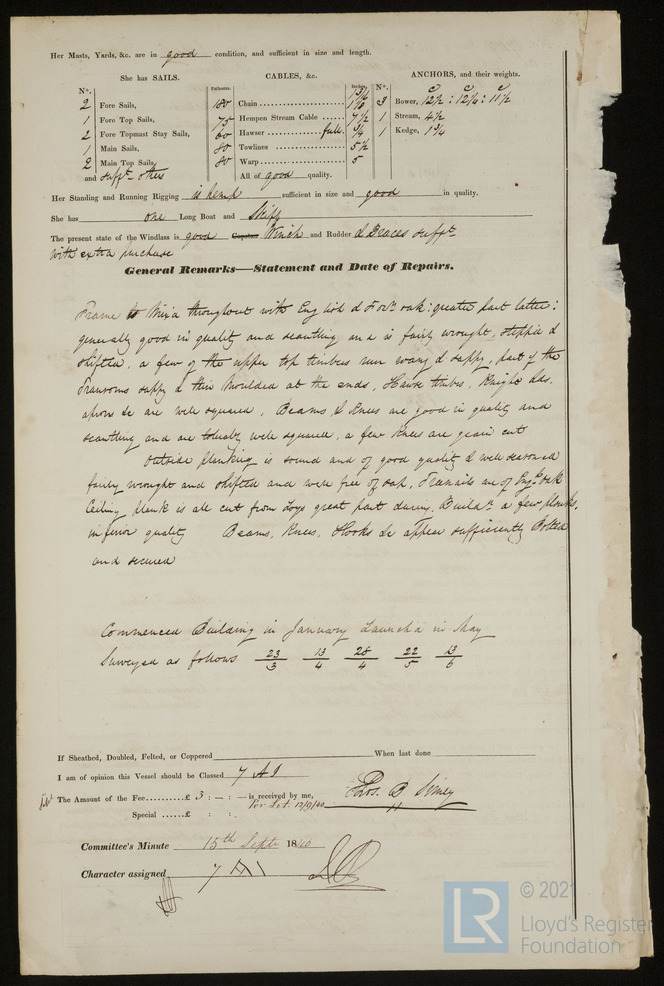 Her Masts, Yards, &c. are in good condition, and sufficient in size and length.
She has SAILS.
CABLES, &c.
ANCHORS, and their weights.
N°.
Fathoms.
Inches.
N°.
2 Fore Sails,
180 Chain 1 3/16
3 Bower, 12 1/2 : 12 1/4 : 11 1/2
1 Fore Top Sails,
75 Hempen Stream Cable 7 1/2
1 Stream, 4 1/2
2 Fore Topmast Stay Sails,
60 Hawser full 3/4
1 Kedge, 1 3/4
1 Main Sails,
80 Towlines 5 1/2
2 Main Top Sails,
80 Warp 5
and sufft. others
All of good quality.
Her Standing and Running Rigging is hemp sufficient in size and good in quality.
She has one Long Boat and Skiff
The present state of the Windlass is good Capstan Winch and Rudder & Braces sufft.
with extra purchase
General Remarks—Statement and Date of Repairs.
Frame is Mix'd throughout with English & Forn. oak : greater part latter :
generally good in quality and scantling and is fairly wrought, stepp'd &
shifted, a few of the upper top timbers run wany & sappy, part of the
Transoms sappy & thin moulded at the ends, Hawse timbers, Knight hds.
aprons &c are well squared, Beams & Knees are good in quality and
scantling and are tolerably well squared, a few Knees are grain cut
Outside planking is sound and of good quality & well seasoned
fairly wrought and shifted and well free of sap, Treenails are of Engh. oak
Ceiling plank is all cut from Logs great part during Buildg. a few planks,
inferior quality Beams, Knees, Hooks &c appear sufficiently Bolted
and secured
Commenced Building in January Launch'd in May
Surveyed as follows 23/3 13/4 28/4 22/5 13/6
If Sheathed, Doubled, Felted, or Coppered When last done
I am of opinion this Vessel should be Classed 7 A1
The Amount of the Fee £ 3 : — : — is received by me,
Per Let. 12/9/40
Thos. B Simey
Special £ : :
Committee's Minute 15th Septr 1840
Character assigned 7 A1
LR
© 2021
Lloyd's Register
Foundation